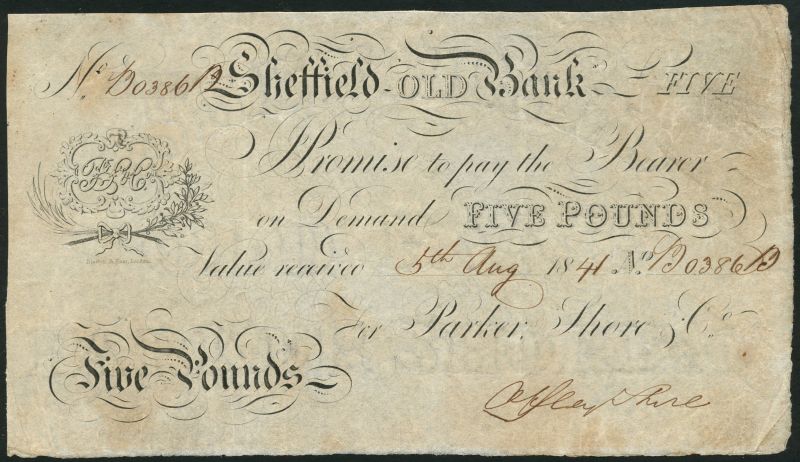 No B0386B Sheffield OLD Bank FIVE
I Promise to pay the Bearer
on Demand FIVE POUNDS
Value received 5th Aug 1841 No B0386B
For Parker, Shore & Co
Five Pounds
Offley Shore